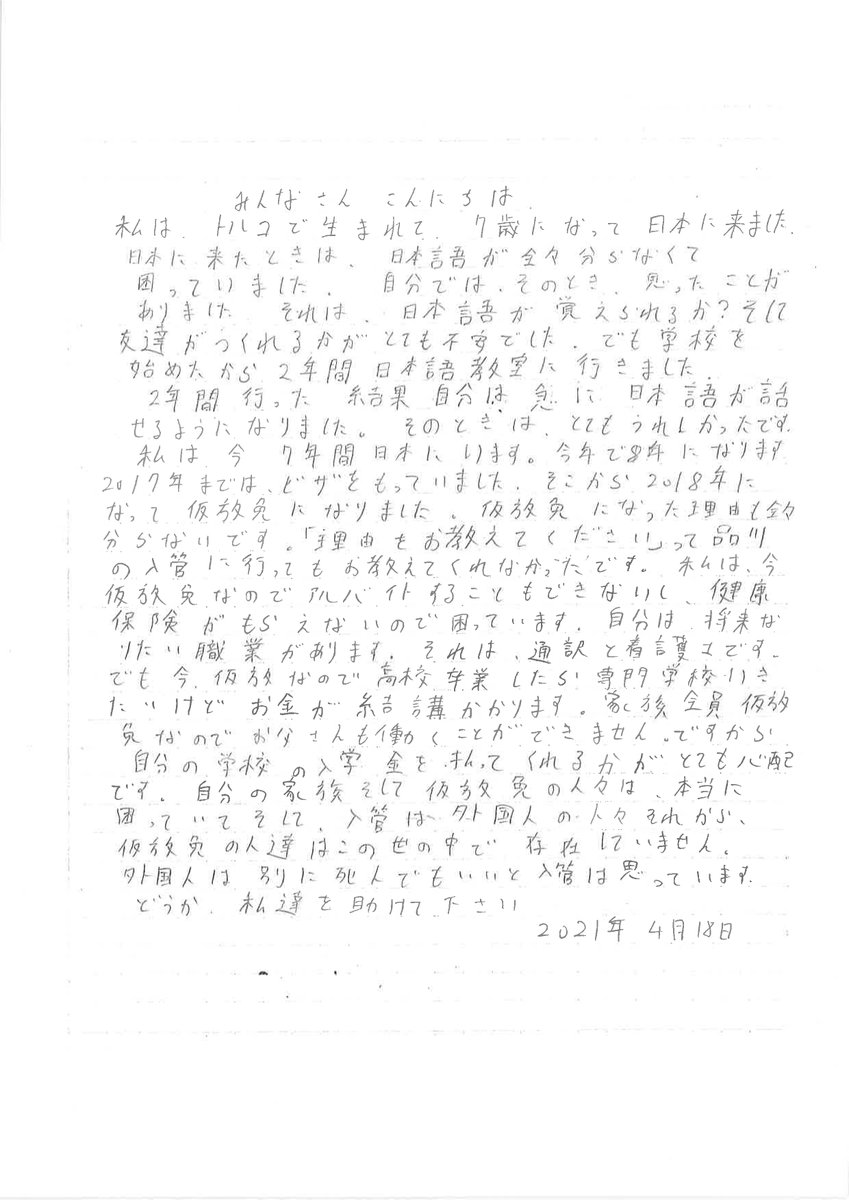 みんなさん こんにちは
私は、トルコで生まれて、7歳になって日本に来ました。
日本に来たときは、日本語が全々分らなくて
困っていました。 自分では、そのとき、思ったことが
ありました それは、日本語が覚えられるか?そして
友達がつくれるかがとても不安でした。でも学校を
始めたから2年間日本語教室に行きました。
2年間行った 結果自分は、急に、日本語が話
せるようになりました。そのときは、とてもうれしかったです。
私は今 7年間日本にいます。今年で8年になります
2017年までは、ビザをもっていました。そこから2018年に
なって仮放免になりました。仮放免になった理由も全々
分らないです。「理由をお教えてください」って品川
の入管に行ってもお教えてくれなかったです。私は、今
仮放免なのでアルバイトすることもできないし、健康
保険がもらえないので困っています。自分は、将来な
りたい職業があります。それは、通訳と看護士です。
でも今、仮放なので高校卒業したら専門学校いき
たいけどお金が結講かかります。家族全員仮放
免なのでお父さんも働くことができません。ですから
自分の学校の入学金を払ってくれるかがとても心配
です。自分の家族そして仮放免の人々は、本当に
困っていてそして、入管は外国人の人々それから、
仮放免の人達はこの世の中で存在していません。
外国人は別に死んでもいいと入管は思っています。
どうか、私達を助けて下さい
2021年 4月18日